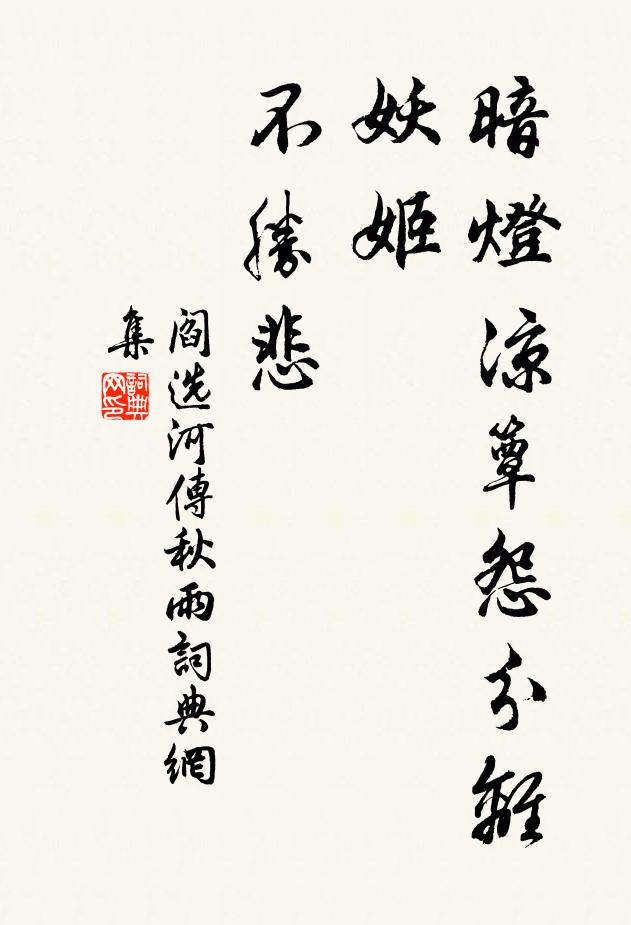 暗燈涼簟怨分離
妖姬
不勝悲
閻选河傳秋雨詞典網
集
詞典网印